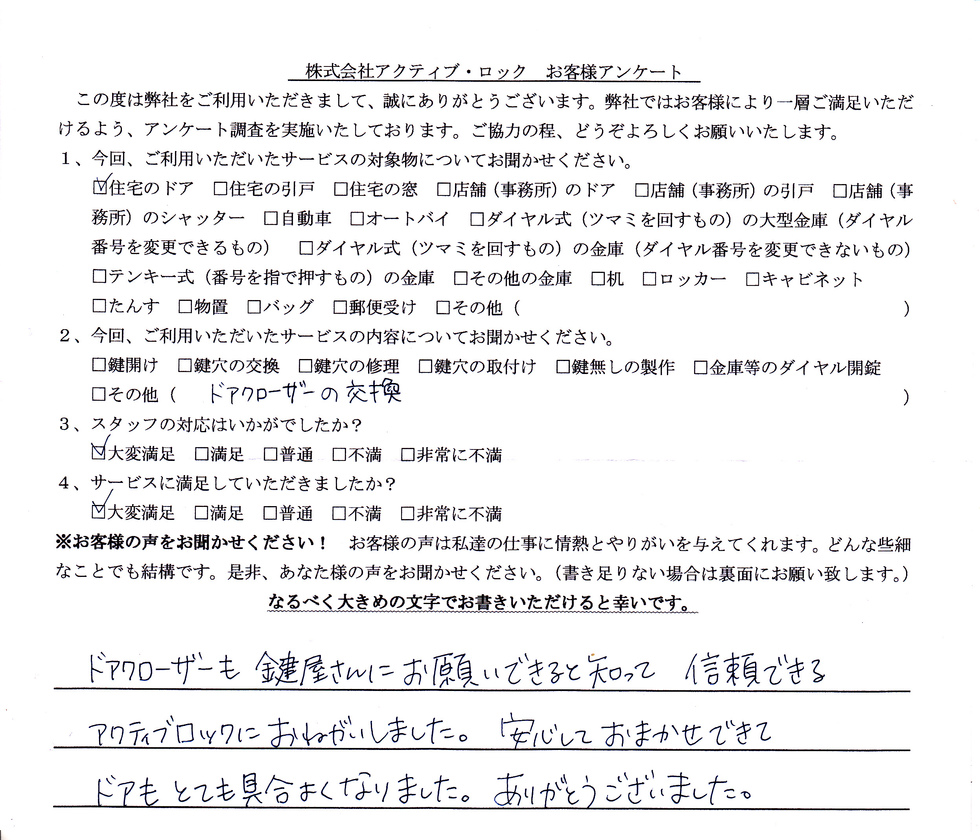 株式会社アクティブ・ロック　お客様アンケート
この度は弊社をご利用いただきまして、誠にありがとうございます。弊社ではお客様により一層ご満足いただ
けるよう、アンケート調査を実施いたしております。ご協力の程、どうぞよろしくお願いいたします。
1、今回、ご利用いただいたサービスの対象物についてお聞かせください。
☑住宅のドア　□住宅の引戸　□住宅の窓　□店舗（事務所）のドア　□店舗（事務所）の引戸　□店舗（事
務所）のシャッター　□自動車　□オートバイ　□ダイヤル式（ツマミを回すもの）の大型金庫（ダイヤル
番号を変更できるもの）　□ダイヤル式（ツマミを回すもの）の金庫（ダイヤル番号を変更できないもの）
□テンキー式（番号を指で押すもの）の金庫　□その他の金庫　□机　□ロッカー　□キャビネット
□たんす　□物置　□バッグ　□郵便受け　□その他（　　　）
2、今回、ご利用いただいたサービスの内容についてお聞かせください。
□鍵開け　□鍵穴の交換　□鍵穴の修理　□鍵穴の取付け　□鍵無しの製作　□金庫等のダイヤル開錠
□その他（　ドアクローザーの交換　）
3、スタッフの対応はいかがでしたか？
☑大変満足　□満足　□普通　□不満　□非常に不満
4、サービスに満足していただきましたか？
☑大変満足　□満足　□普通　□不満　□非常に不満
※お客様の声をお聞かせください！　お客様の声は私達の仕事に情熱とやりがいを与えてくれます。どんな些細
なことでも結構です。是非、あなた様の声をお聞かせください。（書き足りない場合は裏面にお願い致します。）
なるべく大きめの文字でお書きいただけると幸いです。
ドアクローザーも 鍵屋さんに お願いできると知って 信頼できる
アクティブロックに おねがいしました。 安心して おまかせできて
ドアも とても具合よくなりました。 ありがとうございました。